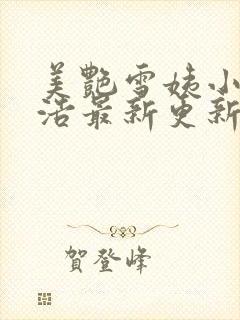 美艷雪姨小
活最新更新
賀登峰